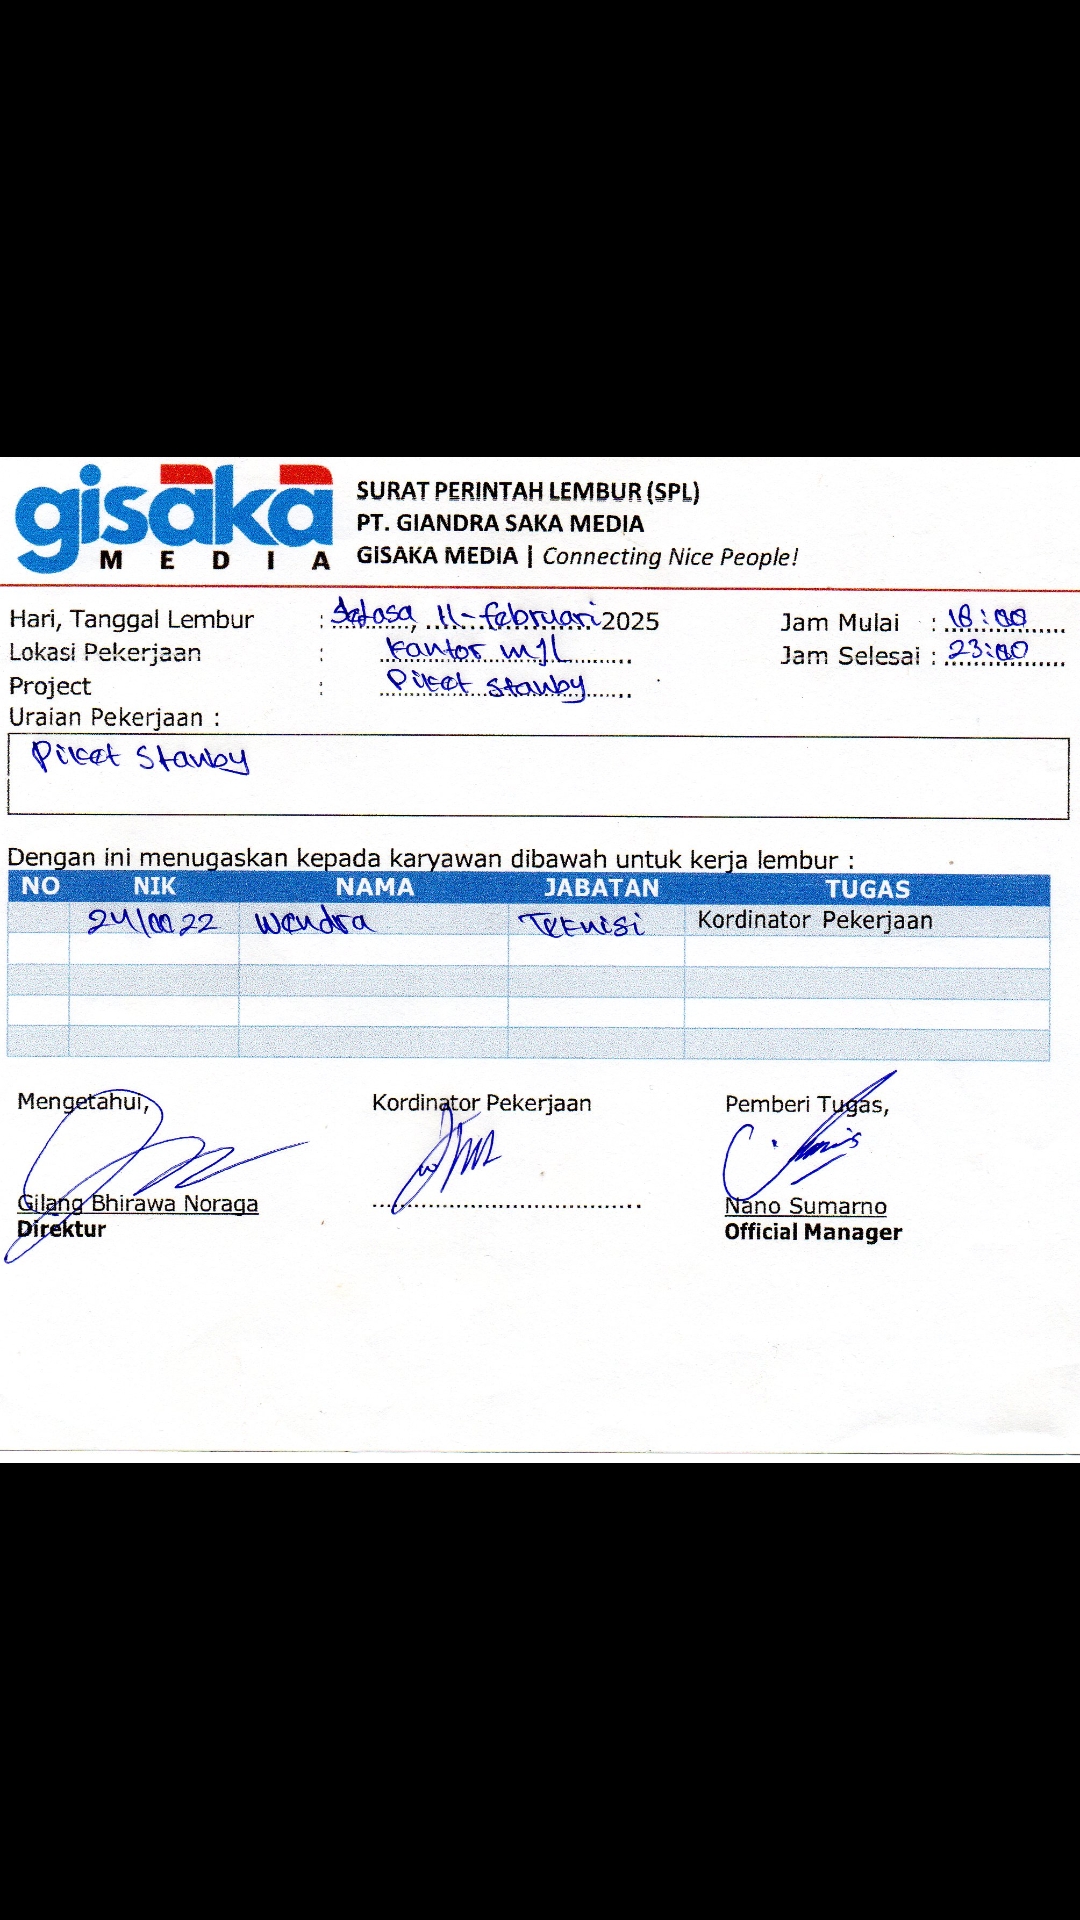 gisaka
MEDIA
SURAT PERINTAH LEMBUR (SPL)
PT. GIANDRA SAKA MEDIA
GISAKA MEDIA | Connecting Nice People!
Hari, Tanggal Lembur : Selasa, 11-februari 2025
Jam Mulai : 18:00
Lokasi Pekerjaan : Kantor MJL
Jam Selesai : 23:00
Project : Piket Stanby
Uraian Pekerjaan :
Piket Stanby
Dengan ini menugaskan kepada karyawan dibawah untuk kerja lembur :
NO NIK NAMA JABATAN TUGAS
24/0022 Wendra Teknisi Kordinator Pekerjaan
Mengetahui, Kordinator Pekerjaan Pemberi Tugas,
Gilang Bhirawa Noraga Nano Sumarno
Direktur Official Manager